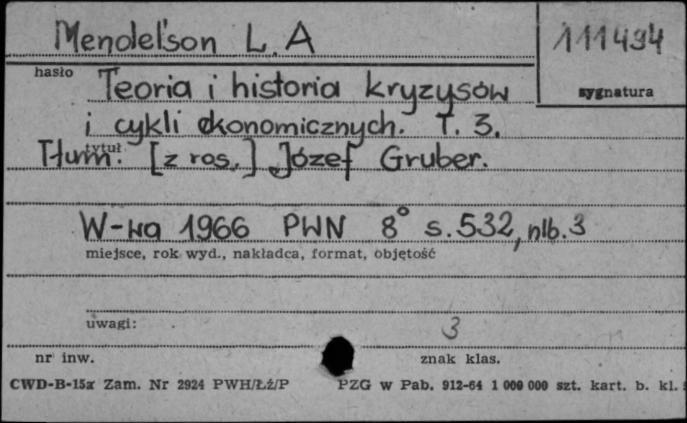 Mendel'son L. A
111494
hasło
sygnatura
Teoria i historia kryzysów
i cykli ekonomicznych. T. 3.
tytuł
Tłum. [z ros.] Józef Gruber.
W-wa 1966 PWN 8° s. 532, nlb. 3
miejsce, rok wyd., nakładca, format, objętość
uwagi:
3
nr inw.
znak klas.
CWD-B-15x Zam. Nr 2924 PWH/Łź/P PZG w Pab. 912-64 1 000 000 szt. kart. b. kl.